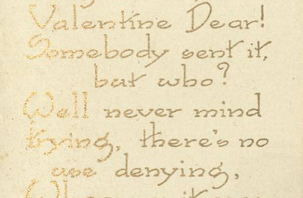 Valentine Dear!
Somebody sent it,
but who?
Well never mind
trying, there's no
use denying,